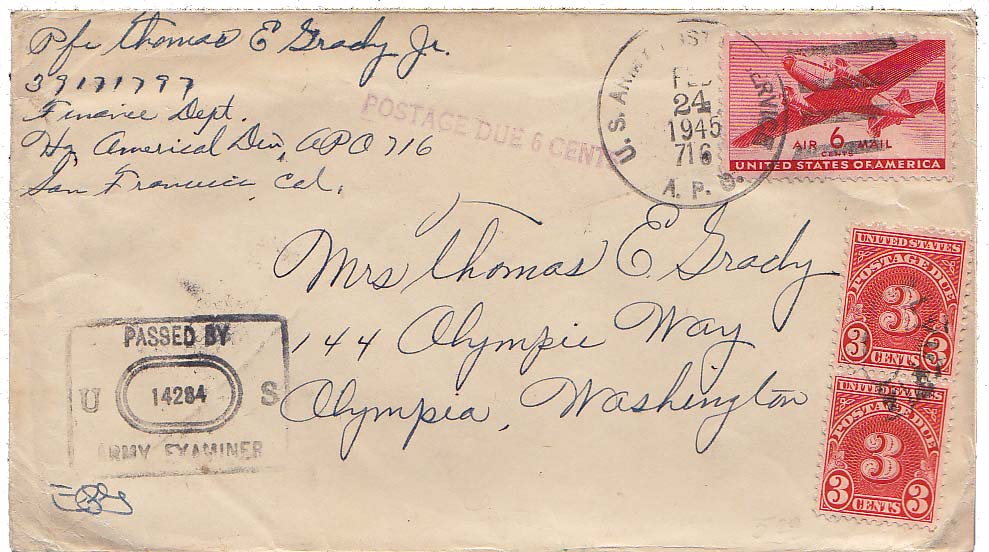 Pfc Thomas E Grady Jr.
39171797
Finance Dept.
Hq Americal Div, APO 716
San Francisco Cal.
POSTAGE DUE 6 CENTS
U.S. ARMY POSTAL SERVICE
FEB
24
1945
716
A. P. O.
AIR 6 MAIL
CENTS
UNITED STATES OF AMERICA
Mrs Thomas E Grady
144 Olympic Way
Olympia, Washington
UNITED STATES
POSTAGE DUE
3
3 CENTS 3
UNITED STATES
POSTAGE DUE
3
3 CENTS 3
PASSED BY
U 14284 S
ARMY EXAMINER